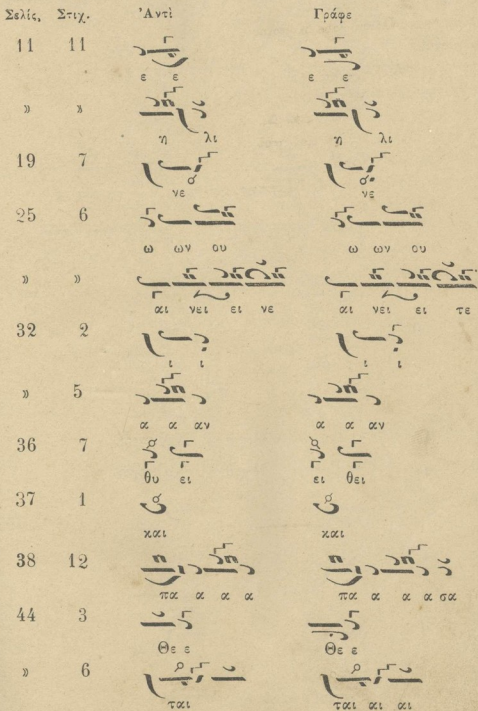 Σελίς, Στιχ. Ἀντὶ Γράφε
11 11
ε ε ε ε
» »
η λι η λι
19 7
νε νε
25 6
ω ων ου ω ων ου
» »
αι νει ει νε αι νει ει τε
32 2
ι ι ι ι
» 5
α α αν α α αν
36 7
θυ ει ει θει
37 1
και και
38 12
πα α α α πα α α α σα
44 3
Θε ε Θε ε
» 6
ται ται αι αι